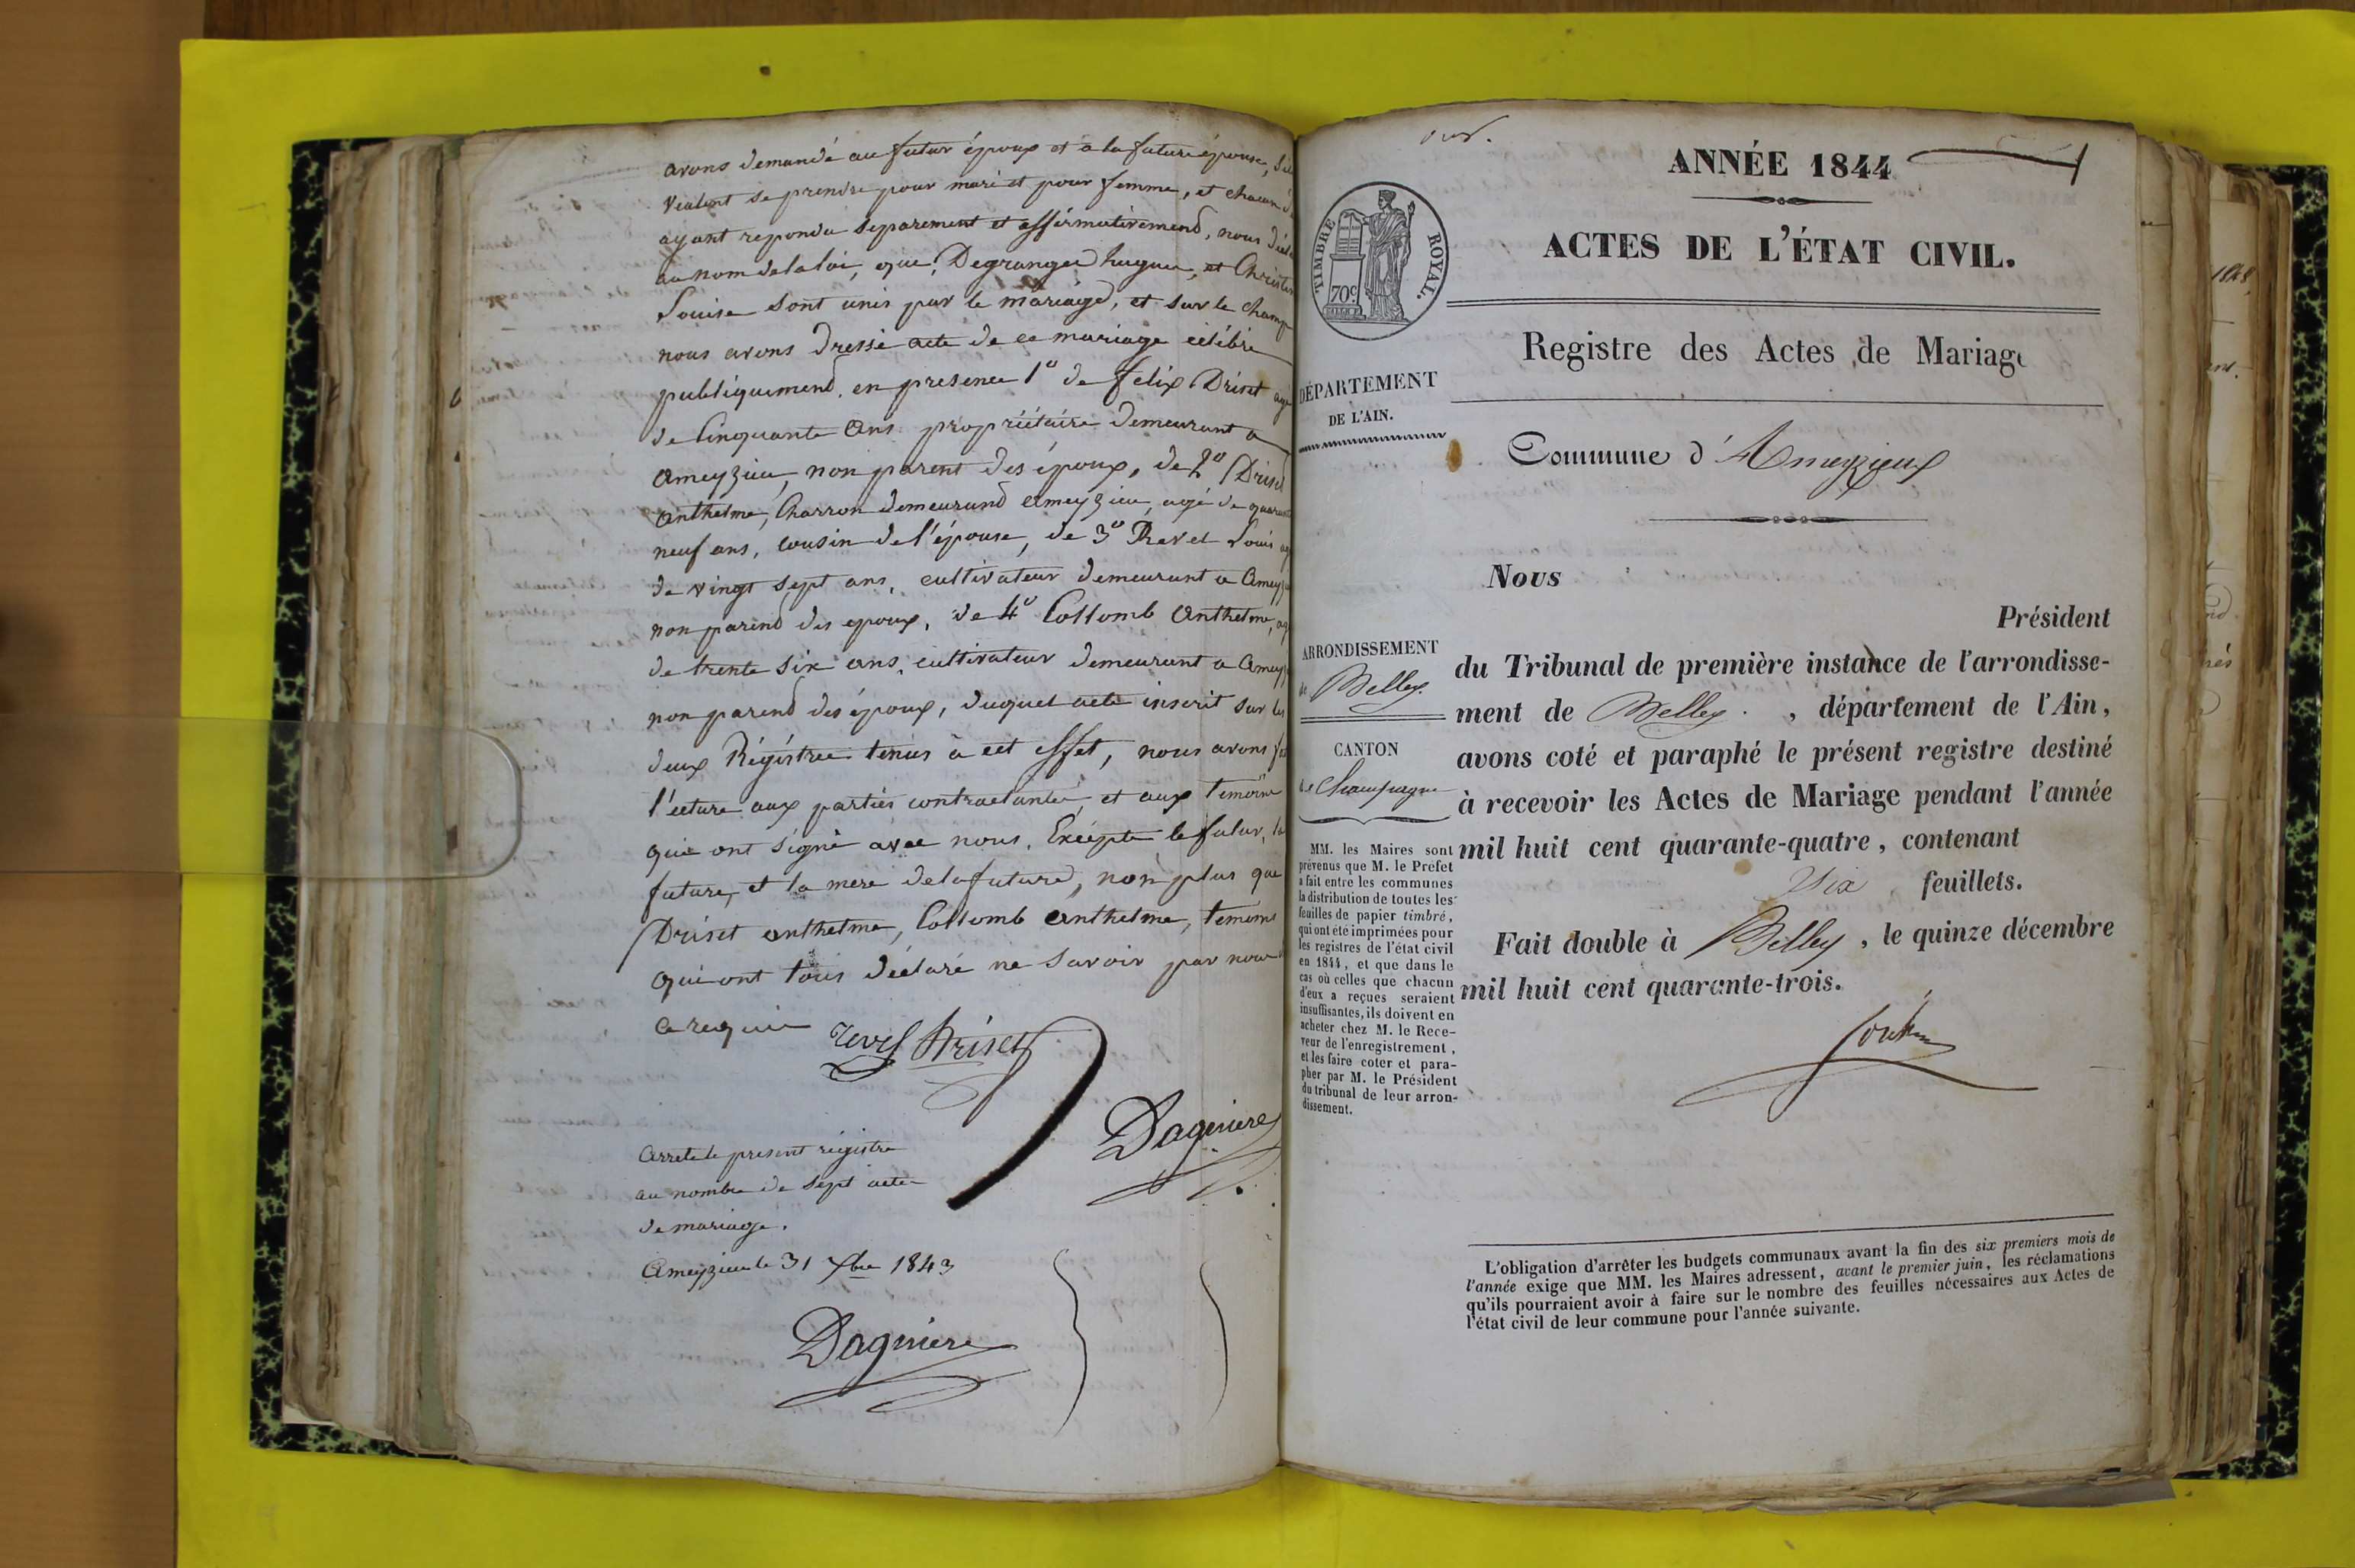 avons demandé au futur époux et a la future épouse, s'il
veulent se prendre pour mari et pour femme, et chacun d'
ayant repondu separement et affirmativement, nous déclar
au nom de la loi, que, Degrange hugue, et
Louise sont unis par le mariage, et sur le champ
nous avons dressé acte de ce mariage célébré
publiquement. en presence 1º de felix Driset agé
de Cinquante Ans propriétaire demeurant a
ameyzieu, non parent des époux, de 2º Driset
anthelme, Charron demeurand ameyzieu, agé de quarant
neuf ans, cousin de l'épouse, de 3º Revel Louis ag
de vingt sept ans, cultivateur demeurant a Ameyz
non parend des epoux, de 4º Collomb Anthelme, ag
de trente six ans, cultivateur demeurant a Ameyz
non parend des époux, duquel acte inscrit sur les
deux Régistres tenus à cet effet, nous avons f
l'ecture aux parties contractantes, et aux temoins
qui ont signé avec nous. Excepte le futur, la
future, et la mere de la future, non plus que
Driset anthelme, Collomb anthelme, temoins
qui ont tous déclaré ne savoir par nous
a requis
revel Driset
Dagniere
Arrete le present régistre
au nombre de sept actes
de mariage.
Ameyzieu le 31 Xbre 1843
Dagniere
ANNÉE 1844
ACTES DE L'ÉTAT CIVIL.
TIMBRE ROYAL.
70c
Registre des Actes de Mariage
DÉPARTEMENT
DE L'AIN.
Commune d'Ameyzieux
Nous
Président
ARRONDISSEMENT
de Belley.
du Tribunal de première instance de l'arrondisse-
ment de Belley. , département de l'Ain,
CANTON
de Champagne
avons coté et paraphé le présent registre destiné
à recevoir les Actes de Mariage pendant l'année
mil huit cent quarante-quatre, contenant
Six feuillets.
Fait double à Belley, le quinze décembre
mil huit cent quarante-trois.
MM. les Maires sont
prévenus que M. le Préfet
a fait entre les communes
la distribution de toutes les
feuilles de papier timbré,
qui ont été imprimées pour
les registres de l'état civil
en 1844, et que dans le
cas où celles que chacun
d'eux a reçues seraient
insuffisantes, ils doivent en
acheter chez M. le Rece-
veur de l'enregistrement,
et les faire coter et para-
pher par M. le Président
du tribunal de leur arron-
dissement.
L'obligation d'arrêter les budgets communaux avant la fin des six premiers mois de
l'année exige que MM. les Maires adressent, avant le premier juin, les réclamations
qu'ils pourraient avoir à faire sur le nombre des feuilles nécessaires aux Actes de
l'état civil de leur commune pour l'année suivante.